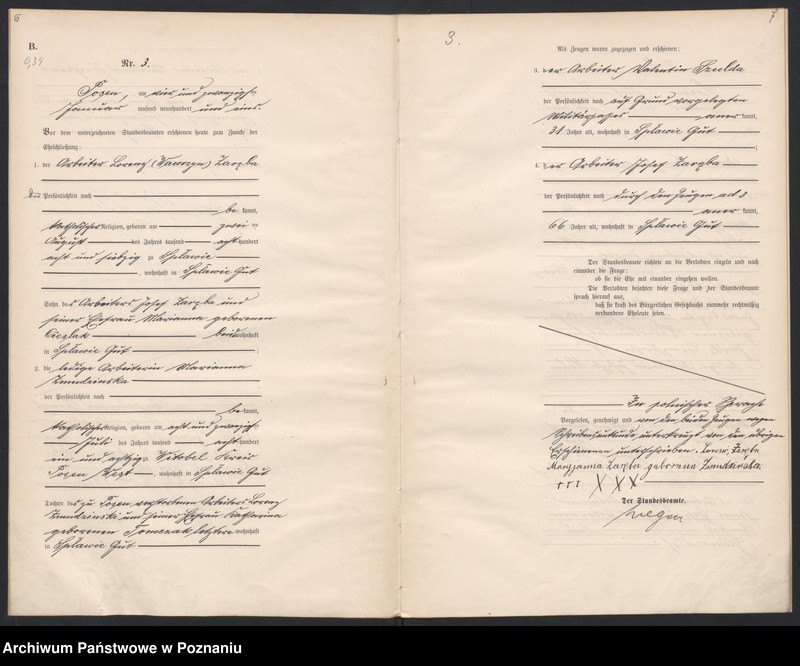 6
B.
Nr. 3.
Posen, am vier und zwanzigsten
Januar tausend neunhundert und eins.
Vor dem unterzeichneten Standesbeamten erschienen heute zum Zweck der
Eheschließung:
1. der Arbeiter Lorenz (Wawrzyn) Zaręba
der Persönlichkeit nach
be kannt,
katholischer Religion, geboren am zwei
August des Jahres tausend acht hundert
acht und siebzig zu Splawie
, wohnhaft in Splawie Gut
Sohn des Arbeiters Josef Zaręba und
seiner Ehefrau Marianna geborenen
Cieślak beide wohnhaft
in Splawie Gut ;
2. die ledige Arbeiterin Marianna
Zmudzinska
der Persönlichkeit nach
be kannt,
katholischer Religion, geboren am acht und zwanzigsten
Juli des Jahres tausend acht hundert
ein und achtzig zu Kreis
Posen West , wohnhaft in Splawie Gut
Tochter des zu Posen verstorbenen Arbeiters Lorenz
Zmudzinski und seiner Ehefrau Katharina
geborenen Tomczak, letztere wohnhaft
in Splawie Gut
3.
7
Als Zeugen waren zugezogen und erschienen:
3. der Arbeiter Valentin Szulda
der Persönlichkeit nach auf Grund vorgelegten
Militärpasses aner kannt,
31 Jahre alt, wohnhaft in Splawie Gut
;
4. der Arbeiter Josef Zaręba
der Persönlichkeit nach durch den Zeugen ad 3
aner kannt,
66 Jahre alt, wohnhaft in Splawie Gut
Der Standesbeamte richtete an die Verlobten einzeln und nach
einander die Frage:
ob sie die Ehe mit einander eingehen wollen.
Die Verlobten bejahten diese Frage und der Standesbeamte
sprach hierauf aus,
daß sie kraft des Bürgerlichen Gesetzbuchs nunmehr rechtmäßig
verbundene Eheleute seien.
In polnischer Sprache
Vorgelesen, genehmigt und von den beiden Zeugen wegen
Schreibensunkunde unterkreuzt von den übrigen
Erschienenen unterschrieben. Lorenz Zaręba
Maryjanna Zaręba geborena Zmudzinska.
+++ XXX
Der Standesbeamte.
Archiwum Państwowe w Poznaniu